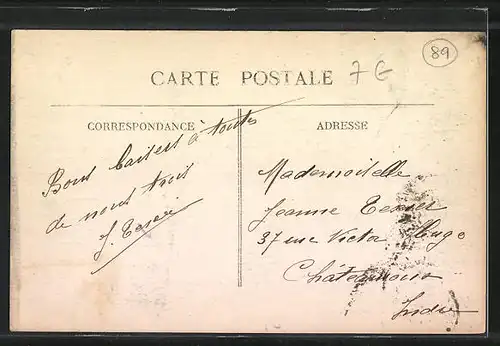 89
7 G
CARTE POSTALE
CORRESPONDANCE
ADRESSE
Bons Baisers à toutes
de nous trois
J.
Mademoiselle
Jeanne
37 rue Victor Hugo
Châteauroux
Indre